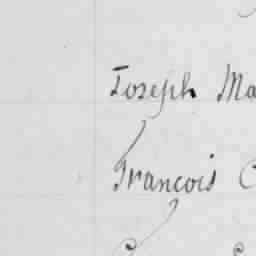 Joseph Ma
Francois C